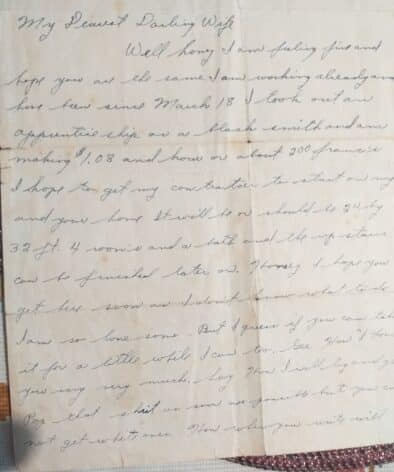 My Dearest Darling Wife
Well honey I am feeling fine and
hope you are the same. I am working already and
have been since March 18 I took out an
apprentice ship as a black smith and am
making $1.08 and hour or about 200 francs
I hope to get my contractor to start on my
and your home It will be or should be 24 by
32 ft. 4 room's and a bath and the up stairs
can be finished later on. Honey I hope you
get here soon as I don't know what to do
I am so lone some. But I guess if you can take
it for a little while I can too. Gee Hon I love
you very very much. Say Hon I will try and get
Pop that suit as soon as possible but you can
not get white ones. Hon when you write will